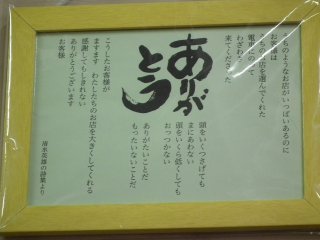 うちのようなお店がいっぱいあるのに
お客様は
うちのお店を選んでくれた
電車にのって
わざわざ
来てくださった
ありがとう
頭をいくつさげても
まにあわない
頭をいくら低くしても
おっつかない
ありがたいことだ
もったいないことだ
こうしたお客様が
ますます わたしたちのお店を大きくしてくれる
感謝してもしきれない
ありがとうございます
お客様
清水英雄の詩集より